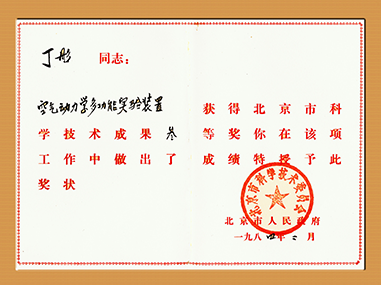 丁彤 同志：
空气动力学多功能实验装置 获得北京市科
学技术成果叁等奖你在该项
工作中做出了成绩特授予此
奖状
北京市科学技术委员会
北京市人民政府
一九八四年二月